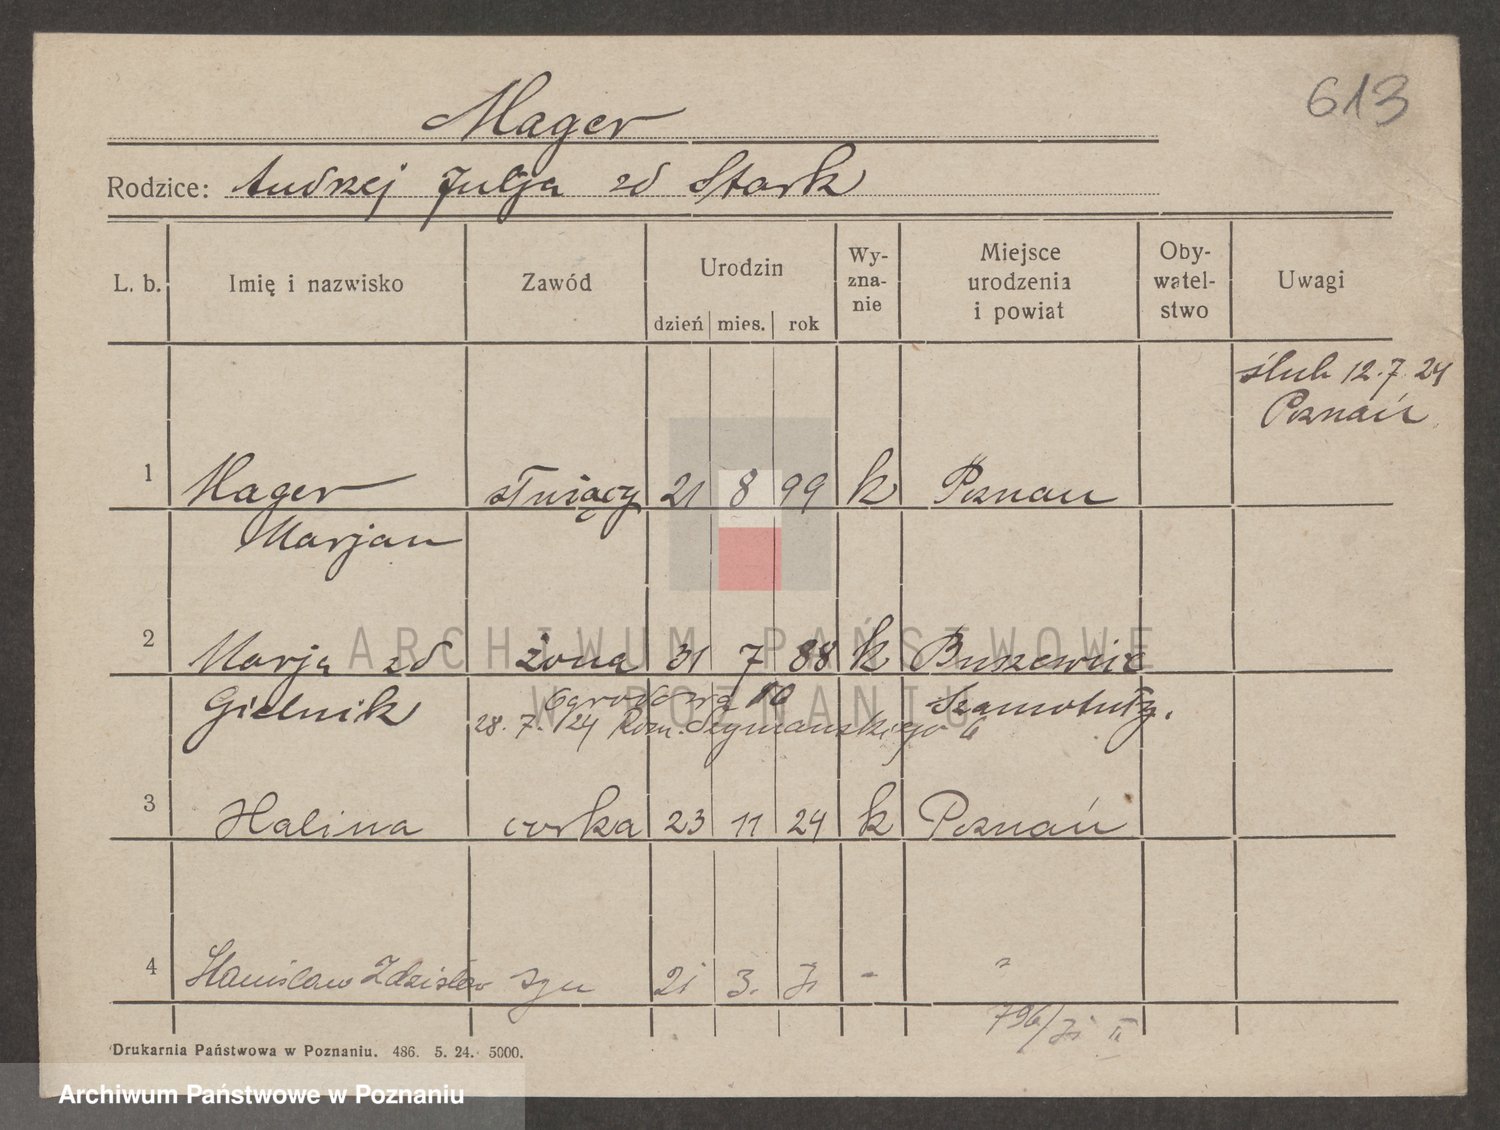 613
Mager
Rodzice: Andrzej Julja zd Stark
L. b. Imię i nazwisko Zawód Urodzin dzień mies. rok Wy-zna-nie Miejsce urodzenia i powiat Oby-watel-stwo Uwagi
ślub 12.7.24
Poznań
1 Mager służący 21 8 99 k Poznań
Marjan
2 Marja zd żona 31 7 88 k Buszewie
Gielnik Ogrodowa 10 Szamotuły.
28. 7. 24 Rom. Szymańskiego 6
3 Halina corka 23 11 24 k Poznań
4 Stanisław Zdzisław syn 21 3. - "
796/ II
Drukarnia Państwowa w Poznaniu. 486. 5. 24. 5000.
ARCHIWUM PAŃSTWOWE
W POZNANIU
Archiwum Państwowe w Poznaniu